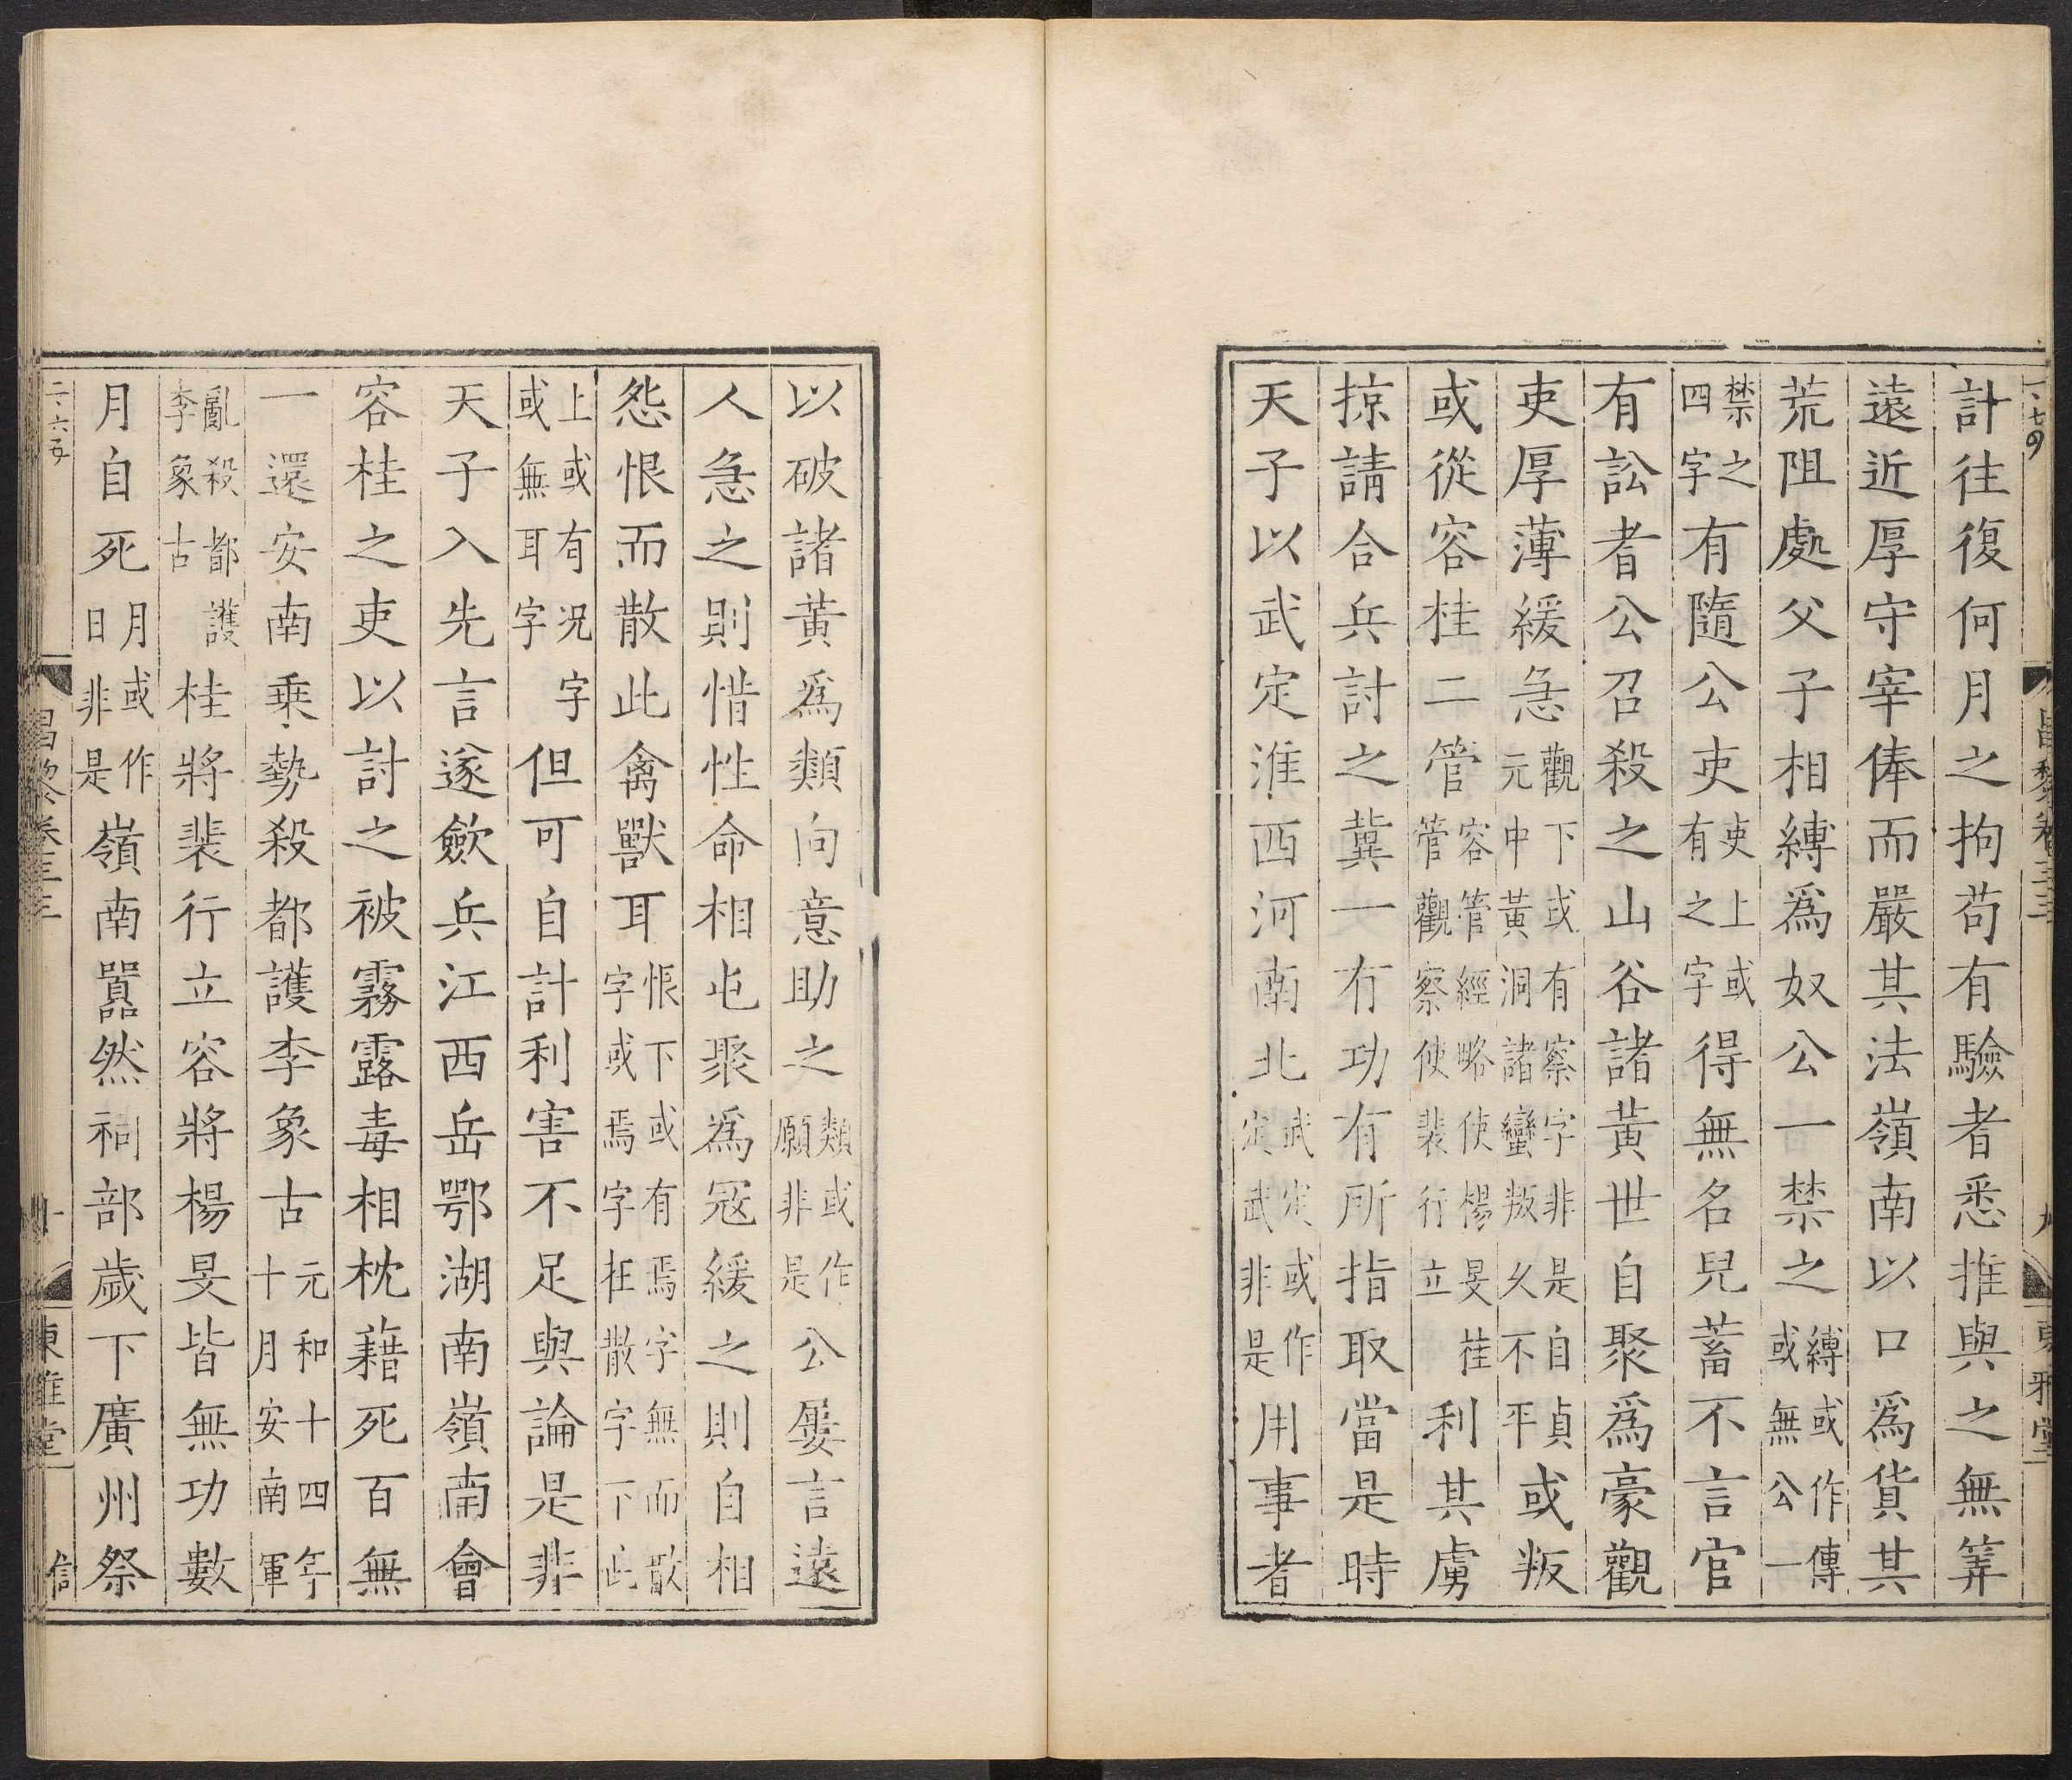 昌黎卷三十三 九 東雅堂
計往復何月之拘苟有驗者悉推與之無筭
遠近厚守宰俸而嚴其法嶺南以口爲貨其
荒阻處父子相縛爲奴公一禁之縛或作傳或無公一
禁之四字有隨公吏吏上或有之字得無名兒蓄不言官
有訟者公召殺之山谷諸黄世自聚爲豪觀
吏厚薄緩急觀下或有察字非是自貞元中黃洞諸蠻叛久不平或叛
或從容桂二管容管經略使楊旻桂管觀察使裴行立利其虜
掠請合兵討之冀一有功有所指取當是時
天子以武定淮西河南北武定或作定武非是用事者
以破諸黄爲類向意助之類或作願非是公屢言遠
人急之則惜性命相屯聚爲寇緩之則自相
怨恨而散此禽獸耳恨下或有焉字無而散字或焉字在散字下此
上或有況字或無耳字但可自計利害不足與論是非
天子入先言遂斂兵江西岳鄂湖南嶺南會
容桂之吏以討之被霧露毒相枕藉死百無
一還安南乗勢殺都護李象古元和十四年十月安南軍
亂殺都護李象古桂將裴行立容將楊旻皆無功數
月自死月或作日非是嶺南囂然祠部歲下廣州祭
二六五 昌黎卷三十三 十 東雅堂 信